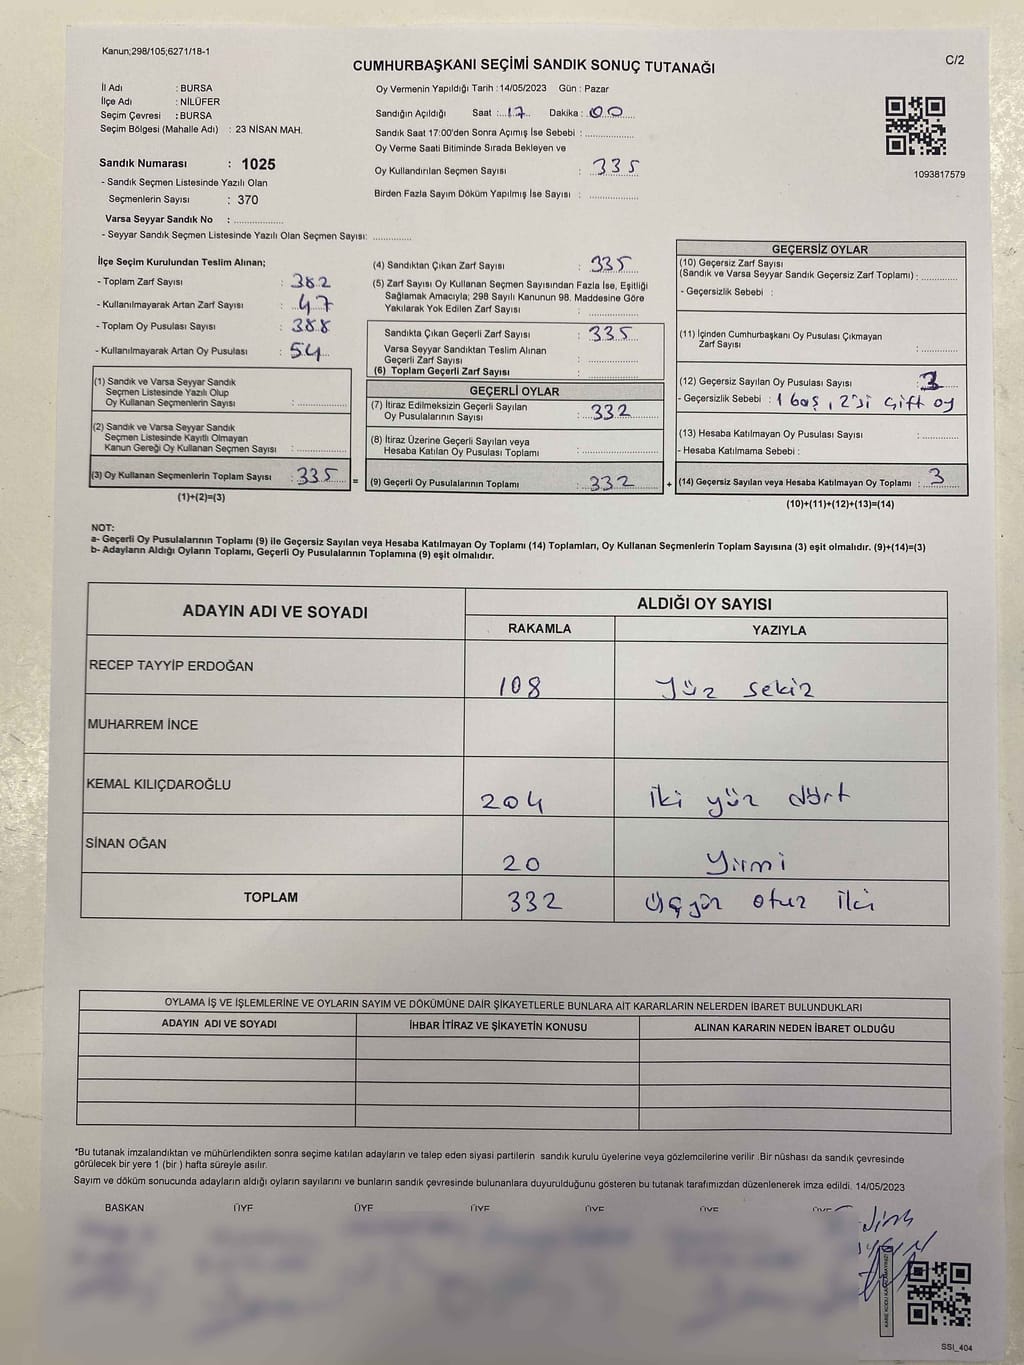 Kanun;298/105;6271/18-1
CUMHURBAŞKANI SEÇİMİ SANDIK SONUÇ TUTANAĞI
C/2
İl Adı : BURSA
İlçe Adı : NİLÜFER
Seçim Çevresi : BURSA
Seçim Bölgesi (Mahalle Adı) : 23 NİSAN MAH.
Sandık Numarası : 1025
- Sandık Seçmen Listesinde Yazılı Olan
Seçmenlerin Sayısı : 370
Varsa Seyyar Sandık No : ................
- Seyyar Sandık Seçmen Listesinde Yazılı Olan Seçmen Sayısı: ............
Oy Vermenin Yapıldığı Tarih : 14/05/2023 Gün : Pazar
Sandığın Açıldığı Saat : 17 Dakika : 00
Sandık Saat 17:00'den Sonra Açımış İse Sebebi : ................
Oy Verme Saati Bitiminde Sırada Bekleyen ve
Oy Kullandırılan Seçmen Sayısı : 335
Birden Fazla Sayım Döküm Yapılmış İse Sayısı : ................
1093817579
İlçe Seçim Kurulundan Teslim Alınan;
- Toplam Zarf Sayısı : 382
- Kullanılmayarak Artan Zarf Sayısı : 47
- Toplam Oy Pusulası Sayısı : 388
- Kullanılmayarak Artan Oy Pusulası : 54
(1) Sandık ve Varsa Seyyar Sandık
Seçmen Listesinde Yazılı Olup
Oy Kullanan Seçmenlerin Sayısı : ................
(2) Sandık ve Varsa Seyyar Sandık
Seçmen Listesinde Kayıtlı Olmayan
Kanun Gereği Oy Kullanan Seçmen Sayısı : ................
(3) Oy Kullanan Seçmenlerin Toplam Sayısı : 335
(1)+(2)=(3)
(4) Sandıktan Çıkan Zarf Sayısı : 335
(5) Zarf Sayısı Oy Kullanan Seçmen Sayısından Fazla İse, Eşitliği
Sağlamak Amacıyla; 298 Sayılı Kanunun 98. Maddesine Göre
Yakılarak Yok Edilen Zarf Sayısı : ................
Sandıkta Çıkan Geçerli Zarf Sayısı : 335
Varsa Seyyar Sandıktan Teslim Alınan
Geçerli Zarf Sayısı : ................
(6) Toplam Geçerli Zarf Sayısı : ................
GEÇERLİ OYLAR
(7) İtiraz Edilmeksizin Geçerli Sayılan
Oy Pusulalarının Sayısı : 332
(8) İtiraz Üzerine Geçerli Sayılan veya
Hesaba Katılan Oy Pusulası Toplamı : ................
= (9) Geçerli Oy Pusulalarının Toplamı : 332 +
GEÇERSİZ OYLAR
(10) Geçersiz Zarf Sayısı
(Sandık ve Varsa Seyyar Sandık Geçersiz Zarf Toplamı) : ............
- Geçersizlik Sebebi :
(11) İçinden Cumhurbaşkanı Oy Pusulası Çıkmayan
Zarf Sayısı : ............
(12) Geçersiz Sayılan Oy Pusulası Sayısı : 3
- Geçersizlik Sebebi : 1 boş, 2'si çift oy
(13) Hesaba Katılmayan Oy Pusulası Sayısı : ............
- Hesaba Katılmama Sebebi :
(14) Geçersiz Sayılan veya Hesaba Katılmayan Oy Toplamı : 3
(10)+(11)+(12)+(13)=(14)
NOT:
a- Geçerli Oy Pusulalarının Toplamı (9) ile Geçersiz Sayılan veya Hesaba Katılmayan Oy Toplamı (14) Toplamları, Oy Kullanan Seçmenlerin Toplam Sayısına (3) eşit olmalıdır. (9)+(14)=(3)
b- Adayların Aldığı Oyların Toplamı, Geçerli Oy Pusulalarının Toplamına (9) eşit olmalıdır.
ADAYIN ADI VE SOYADI
ALDIĞI OY SAYISI
RAKAMLA YAZIYLA
RECEP TAYYİP ERDOĞAN 108 Yüz sekiz
MUHARREM İNCE
KEMAL KILIÇDAROĞLU 204 iki yüz dört
SİNAN OĞAN 20 Yirmi
TOPLAM 332 üçyüz otuz iki
OYLAMA İŞ VE İŞLEMLERİNE VE OYLARIN SAYIM VE DÖKÜMÜNE DAİR ŞİKAYETLERLE BUNLARA AİT KARARLARIN NELERDEN İBARET BULUNDUKLARI
ADAYIN ADI VE SOYADI İHBAR İTİRAZ VE ŞİKAYETİN KONUSU ALINAN KARARIN NEDEN İBARET OLDUĞU
*Bu tutanak imzalandıktan ve mühürlendikten sonra seçime katılan adayların ve talep eden siyasi partilerin sandık kurulu üyelerine veya gözlemcilerine verilir .Bir nüshası da sandık çevresinde
görülecek bir yere 1 (bir ) hafta süreyle asılır.
Sayım ve döküm sonucunda adayların aldığı oyların sayılarını ve bunların sandık çevresinde bulunanlara duyurulduğunu gösteren bu tutanak tarafımızdan düzenlenerek imza edildi. 14/05/2023
BAŞKAN ÜYE ÜYE ÜYE ÜYE ÜYE ÜYE
SSI_404